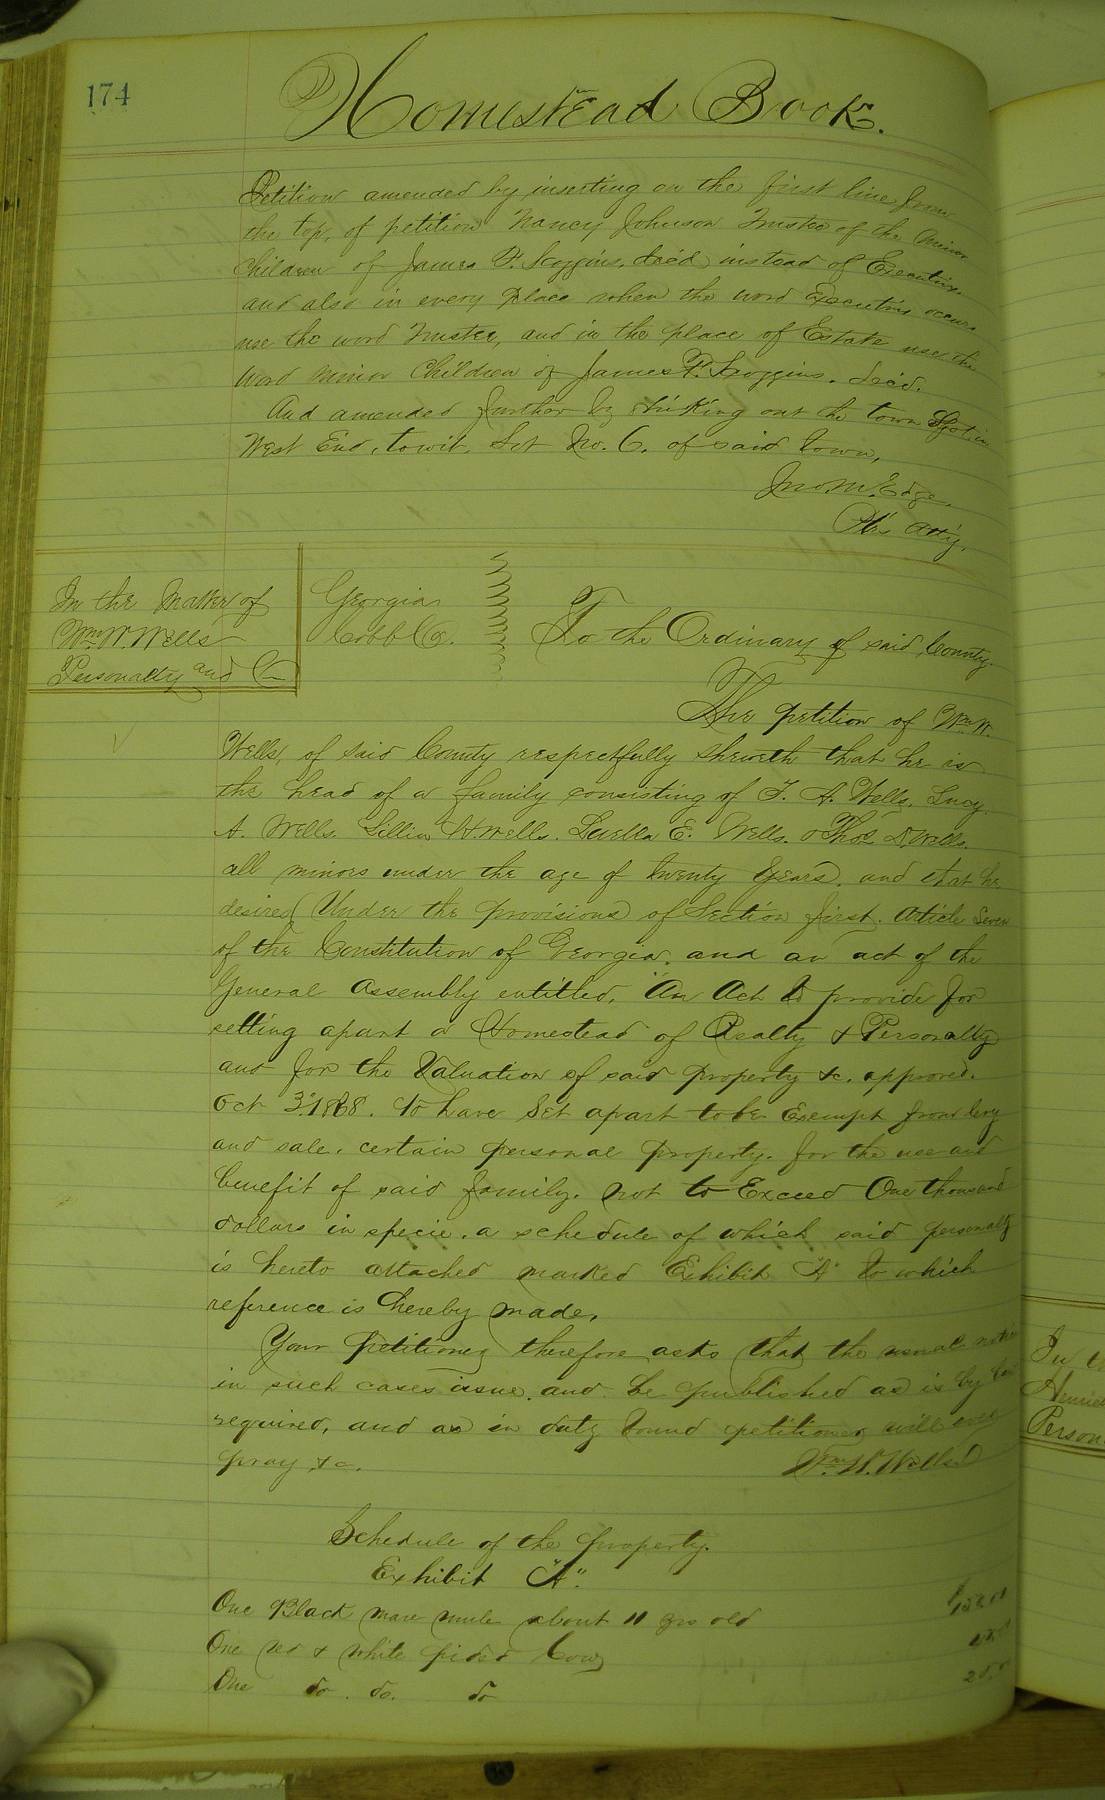 174
Homestead Book.
Petition amended by inserting on the first line from
the top, of petition Nancy Johnson Trustee of the minor
Children of James P. Scoggins, dec'd, instead of Executrix.
and also in every place when the word Executrix occurs
use the word Trustee, and in the place of Estate use the
word minor Children of James P. Scoggins. dec'd.
And amended further by striking out the town lot in
West End, towit, Lot No. 6. of said Town,
Jno. M. Edge,
Ptr's Atty.
In the Matter of
Wm W. Wells
Personalty and
Georgia
Cobb Co.
To the Ordinary of said County.
The petition of Wm W.
Wells, of said County respectfully sheweth that he is
the head of a family consisting of T. A. Wells, Lucy
A. Wells. Lillie H Wells. Luella E. Wells. & Thos D. Wells.
all minors under the age of twenty years, and that he
desires Under the provisions of Section first. Article Seven
of the Constitution of Georgia. and an act of the
General Assembly entitled, "An Act to provide for
setting apart a Homestead of Realty & Personalty
and for the Valuation of said property &c. approved.
Oct 3" 1868. to have set apart to be Exempt from levy
and sale, certain personal property. for the use and
benefit of said family. not to Exceed One thousand
dollars in specie. a schedule of which said personalty
is hereto attached marked Exhibit "A" to which
reference is hereby made,
Your petitioner therefore asks that the usual notice
in such cases issue. and be published as is by law
required, and as in duty bound petitioner will ever
pray &c. Wm W. Wells
Schedule of the property.
Exhibit "A".
One Black mare mule about 11 yrs old
One red & white pided Cow
One do. do. do
In
Henrie
Person